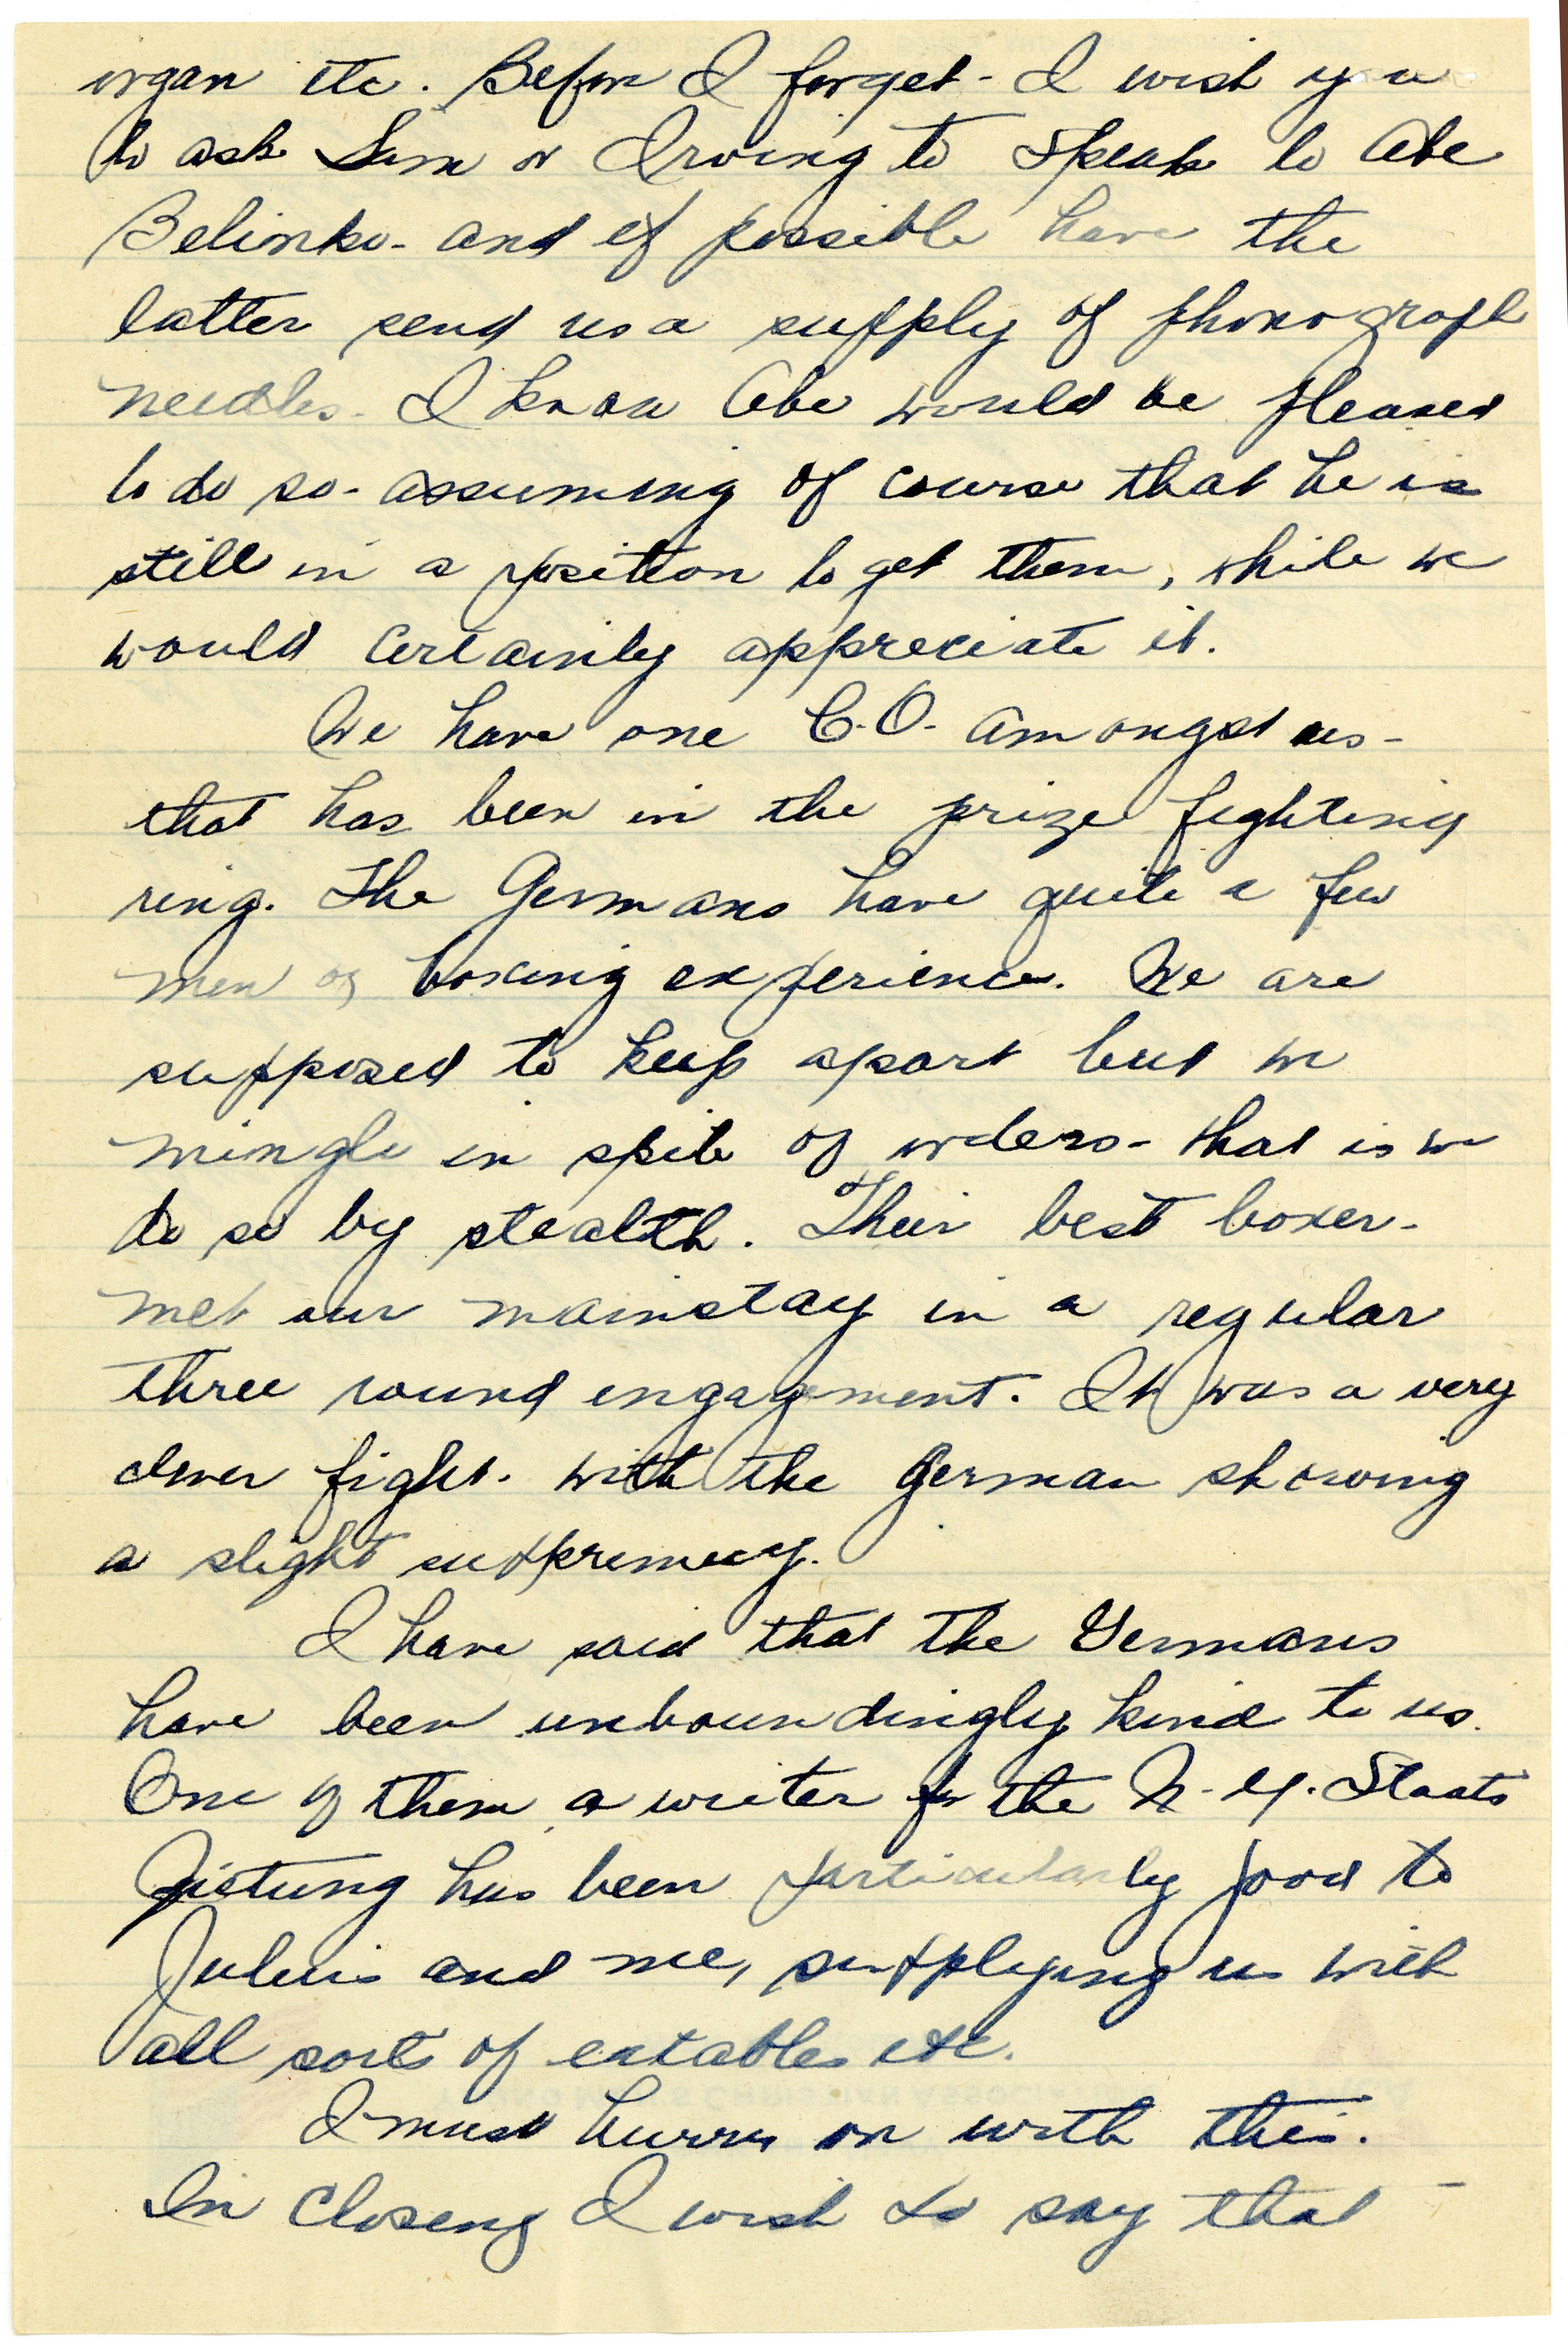 organ etc. Before I forget - I wish you
to ask Sam or Irving to speak to Abe
Belinko - and if possible have the
latter send us a supply of phonograph
needles - I know Abe would be pleased
to do so - assuming of course that he is
still in a position to get them, while we
would certainly appreciate it.
We have one C.O. amongst us -
that has been in the prize fighting
ring. The Germans have quite a few
men of boxing experience. We are
supposed to keep apart but we
mingle in spite of orders - that is we
do so by stealth. Their best boxer -
met our mainstay in a regular
three round engagement. It was a very
clever fight. with the German showing
a slight suppremecy.
I have said that the Germans
have been unboundingly kind to us.
One of them, a writer for the N.Y. Staats
Zietung has been particularly good to
Julius and me, supplying us with
all sorts of eatables etc.
I must hurry on with this.
In closing I wish to say that -